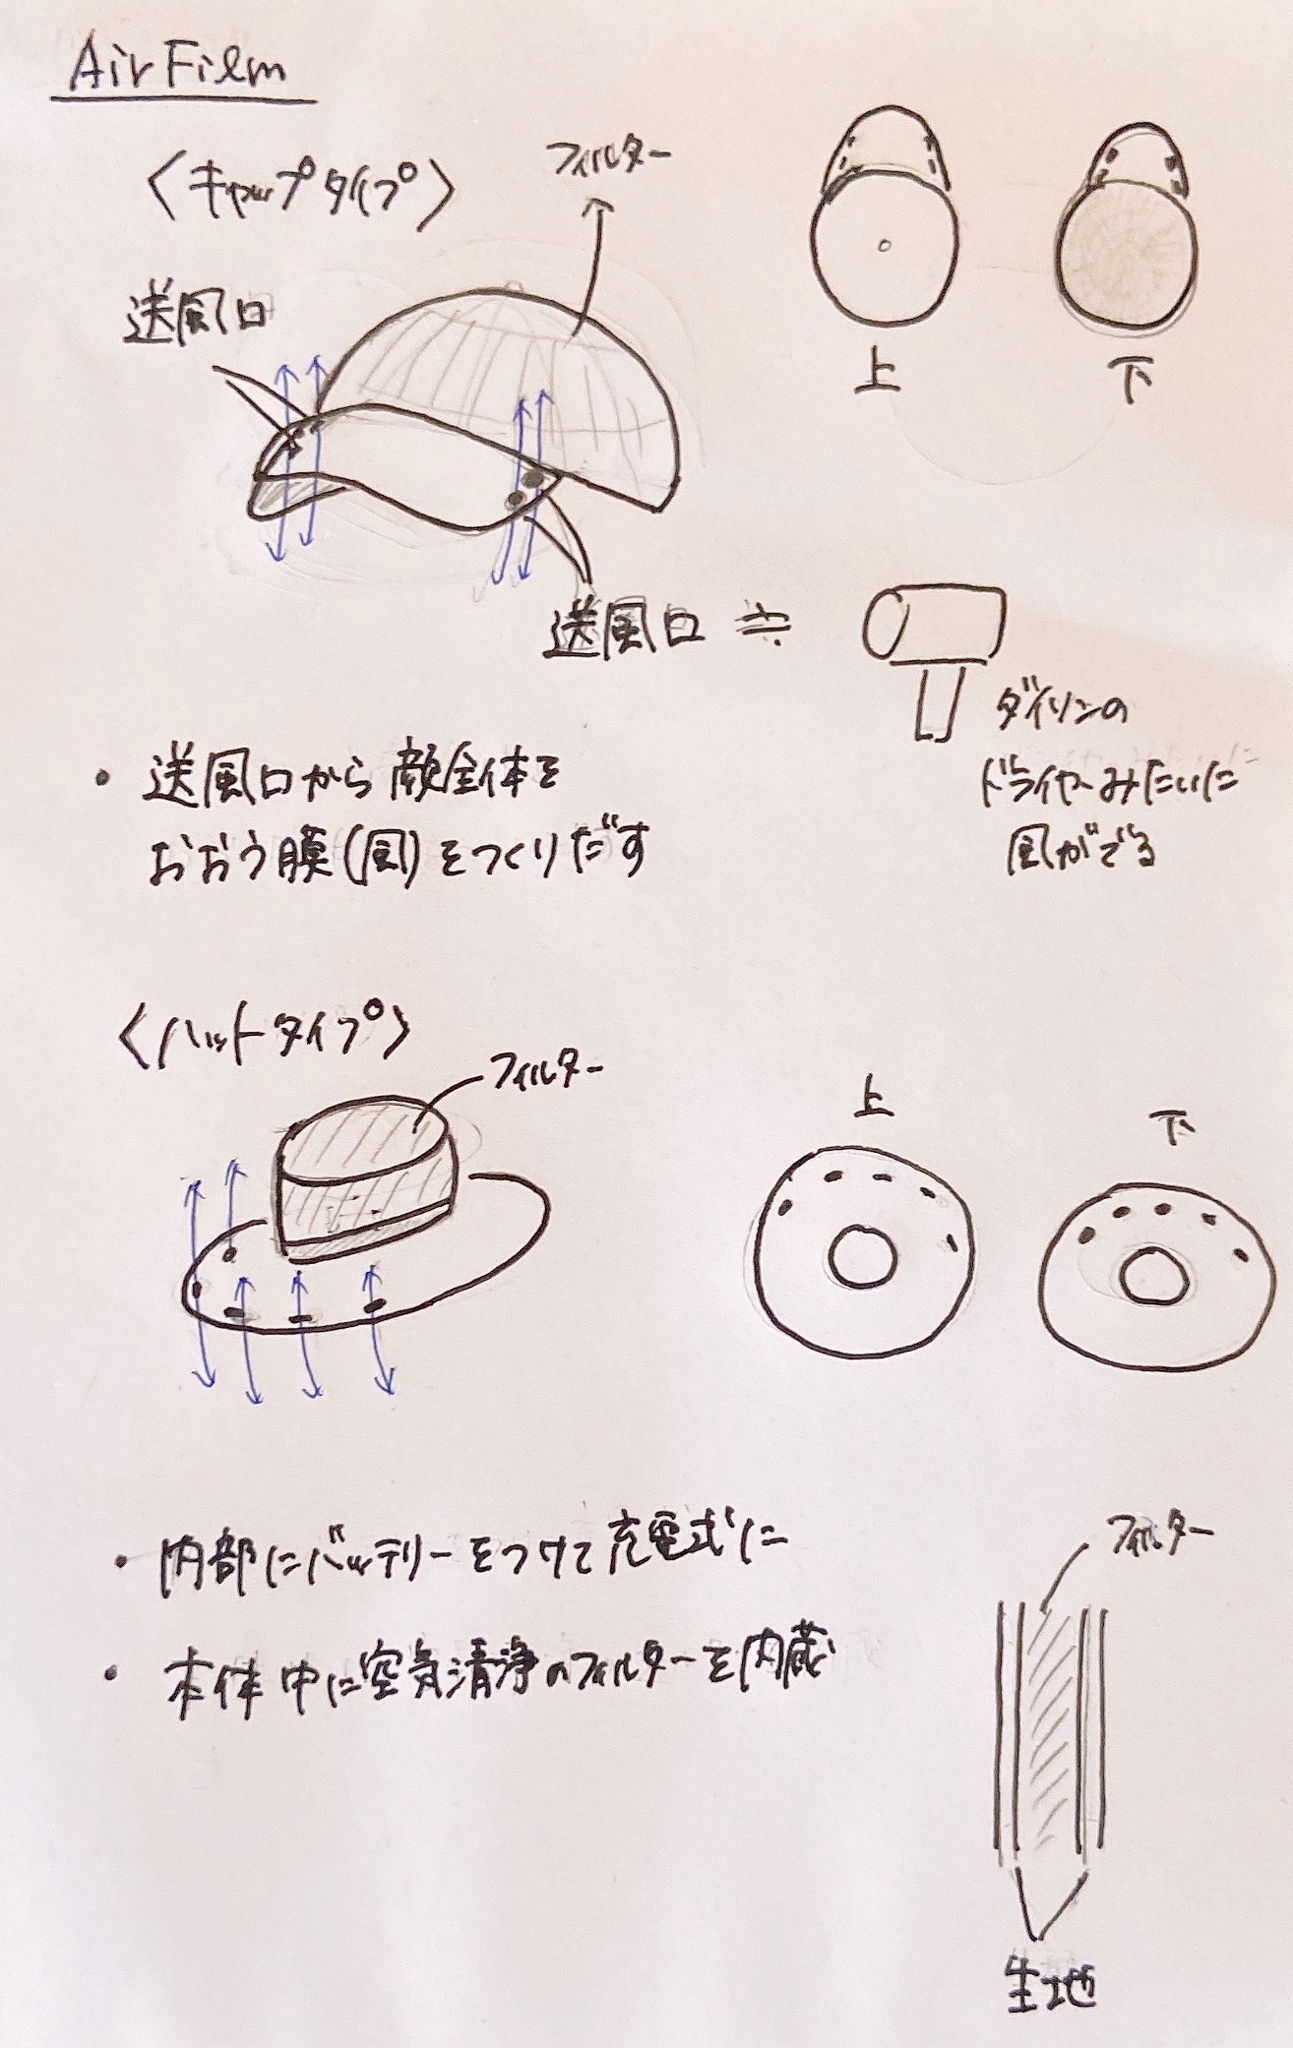 Air Film
〈キャップタイプ〉
フィルター
送風口
上
下
送風口 ≒
ダイソンの
ドライヤーみたいな
風がでる
・送風口から顔全体を
おおう膜(風)をつくりだす
〈ハットタイプ〉
フィルター
上
下
・内部にバッテリーをつけて充電式に
・本体中に空気清浄のフィルターを内蔵
フィルター
生地